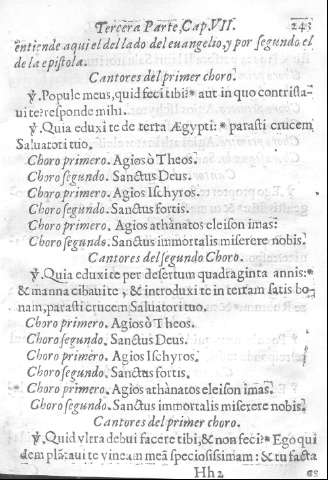 Tercera Parte, Cap. VII. 243
entiende aqui el del lado del euangelio, y por segundo el
de la epistola.
Cantores del primer choro.
℣. Popule meus, quid feci tibi? * aut in quo contrista-
ui te? responde mihi.
℣. Quia eduxi te de terra Ægypti: * parasti crucem
Saluatori tuo.
Choro primero. Agios ò Theos.
Choro segundo. Sanctus Deus.
Choro primero. Agios Ischyros.
Choro segundo. Sanctus fortis.
Choro primero. Agios athànatos eleison imas.
Choro segundo. Sanctus immortalis miserere nobis.
Cantores del segundo Choro.
℣. Quia eduxi te per desertum quadraginta annis: *
& manna cibaui te, & introduxi te in terram satis bo-
nam, parasti crucem Saluatori tuo.
Choro primero. Agios ò Theos.
Choro segundo. Sanctus Deus.
Choro primero. Agios Ischyros.
Choro segundo. Sanctus fortis.
Choro primero. Agios athànatos eleison imas.
Choro segundo. Sanctus immortalis miserere nobis.
Cantores del primer choro.
℣. Quid vltra debui facere tibi, & non feci? * Ego qui
dem plãtaui te vineam meã speciosissimam: & tu facta
Hh 2 es